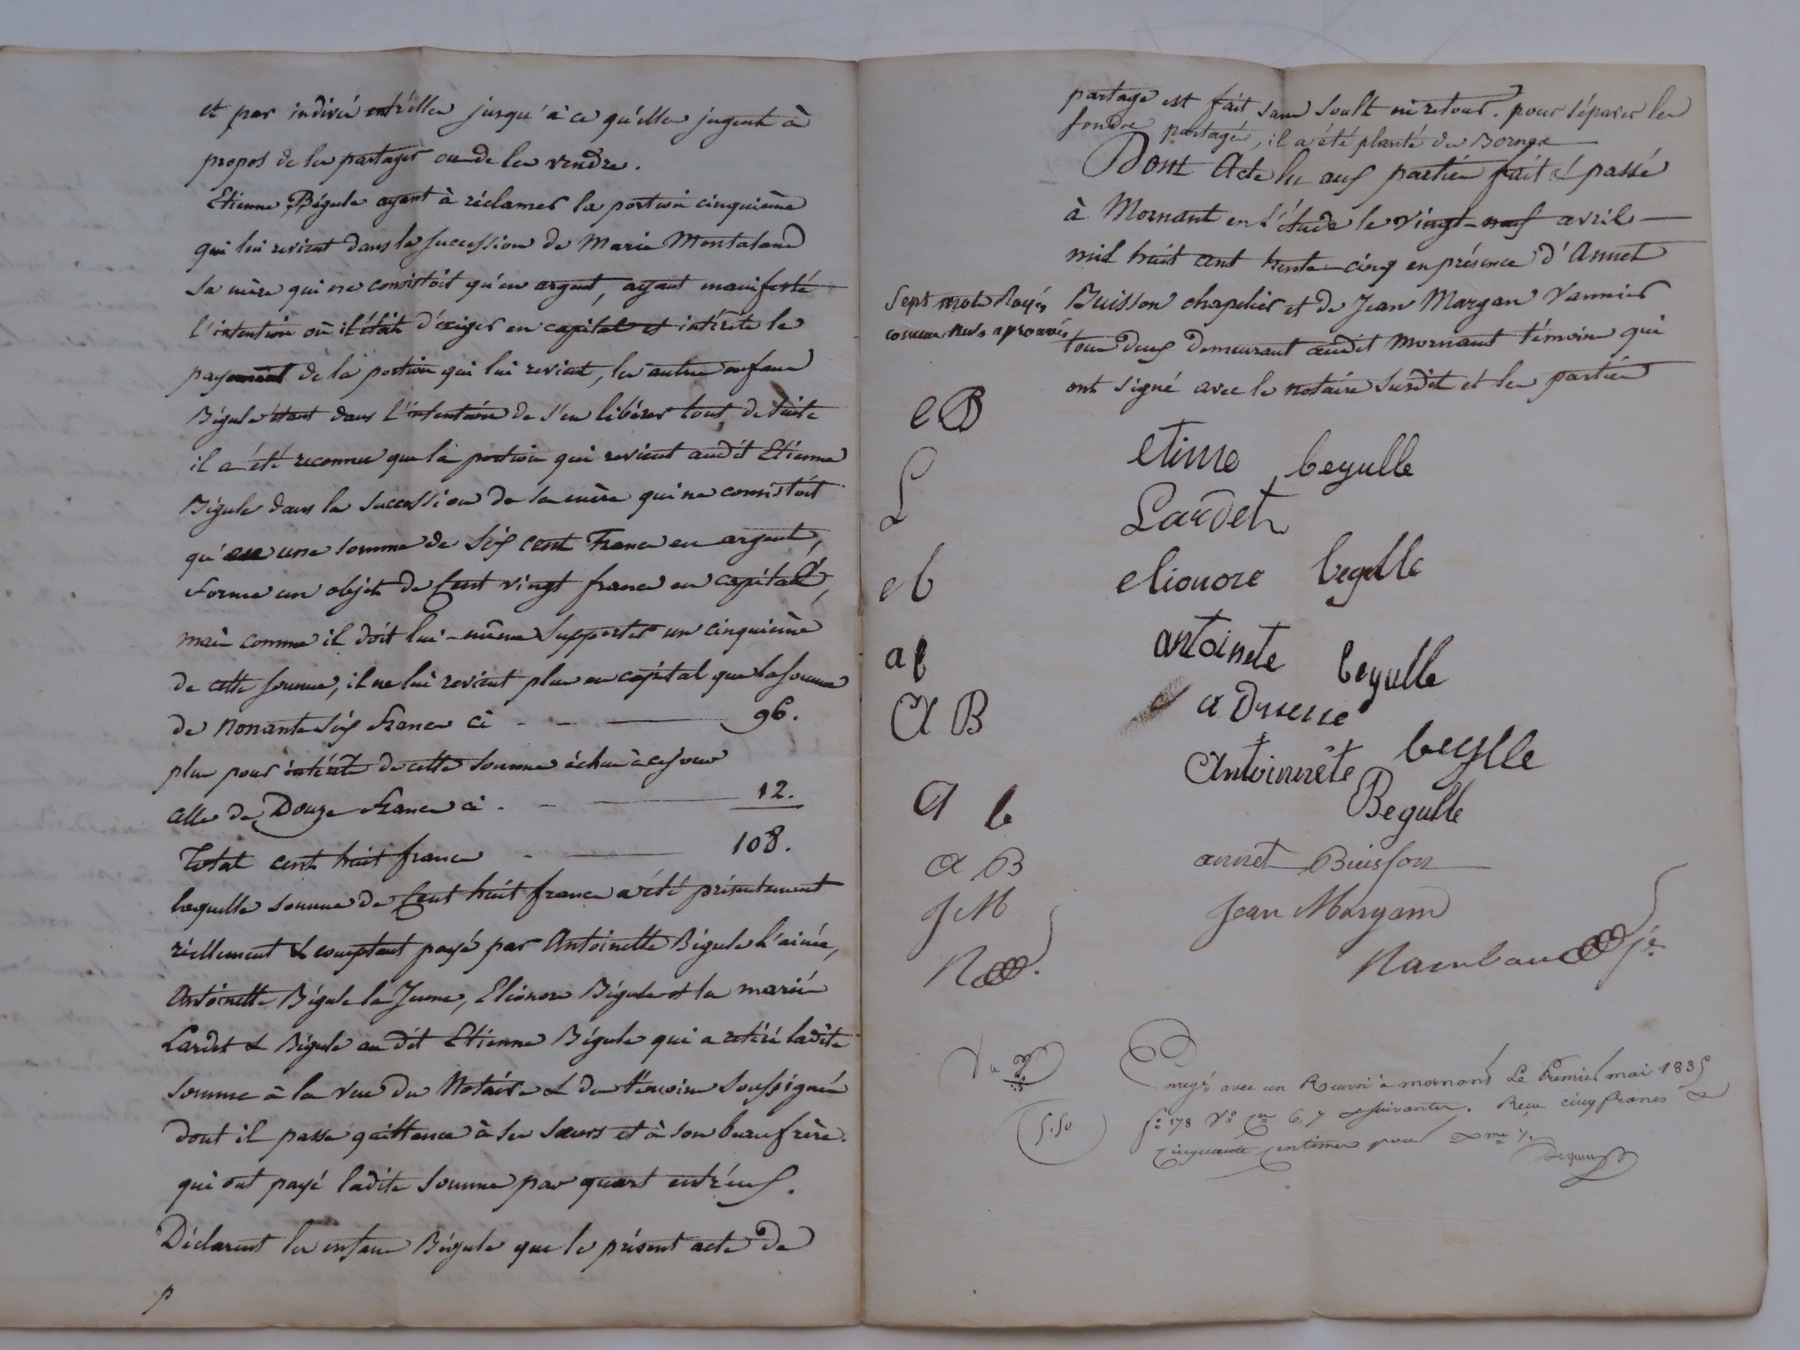 et par indivis entr'elles jusqu'à ce qu'elles jugent à
propos de les partager ou de les vendre.
Etienne Bégule ayant à réclamer la portion cinquième
qui lui revient dans la succession de Marie Montaland
sa mère qui ne consistoit qu'en argent, ayant manifesté
l'intention où il était d'exiger en capital et intérêts le
payement de la portion qui lui revient, les autres enfans
Bégule étant dans l'intention de s'en libérer tout de suite
il a été reconnu que la portion qui revient audit Etienne
Bégule dans la succession de sa mère qui ne consistoit
qu'en une somme de Six cent francs en argent,
forme un objet de Cent vingt francs en capital,
mais comme il doit lui-même supporter un cinquième
de cette somme, il ne lui revient plus en capital que la somme
de nonante Six francs ci - - 96.
plus pour intérêts de cette somme échus à ce jour
celle de Douze francs ci - - 12.
Total cent huit francs - 108.
laquelle somme de Cent huit francs a été présentement
réellement & comptant payé par Antoinette Bégule l'ainée,
Antoinette Bégule la Jeune, Eléonore Bégule et les mariés
Lardet & Bégule au dit Etienne Bégule qui a retiré ladite
somme à la vue du Notaire & des témoins Soussignés
dont il passe quittance à ses sœurs et à son beau frère
qui ont payé ladite somme par quart entr'eux.
Déclarent les enfans Bégule que le présent acte de
partage est fait sans soulte ni retour. pour séparer les
fonds partagés, il a été planté des Bornes
Dont Acte lu aux parties fait & passé
à Mornant en l'étude le vingt-neuf avril
mil huit cent trente-cinq en présence d'Annet
Buisson chapelier et de Jean Margan Vannier
tous deux demeurant audit Mornant témoins qui
ont signé avec le notaire susdit et les parties
Sept mots Rayés
comme nuls aprouvés
e B
etinne begulle
L
Lardet
e b
elionore begulle
a b
antoinete begulle
A B
begulle
A b
Antoinnète Begulle
a B
annet Buisson
J M
Jean Margam
R
Rambaud
Vu
5.50
Enregé avec un Renvoi à mornant Le Premier mai 1835
f° 178 V° Ces 6, 7 & suivantes. Reçu cinq francs &
cinquante centimes pour